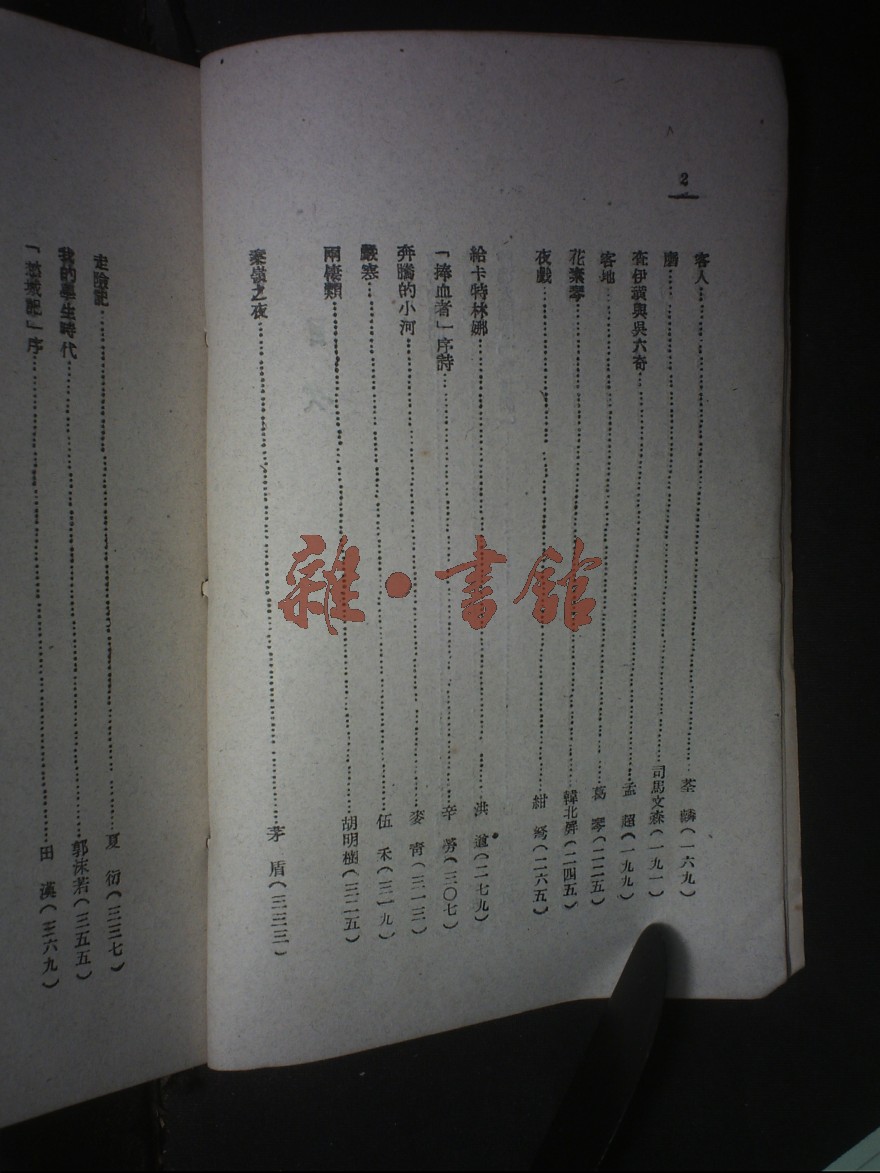 2
客人……荃麟(一六九)
……司馬文森(一九一)
查伊璜與吳六奇……孟超(一九九)
客地……葛琴(二二五)
花素琴……韓北屏(二四五)
夜戲……紺弩(二六五)
給卡特林娜……洪遒(二七九)
「捧血者」序詩……辛勞(三〇七)
奔騰的小河……麥青(三一三)
嚴寒……伍禾(三一九)
兩棲類……胡明樹(三二五)
秦嶺之夜……茅盾(三三三)
走險記……夏衍(三三七)
我的學生時代……郭沫若(三五五)
「愁城記」序……田漢(三六九)
雜·書館